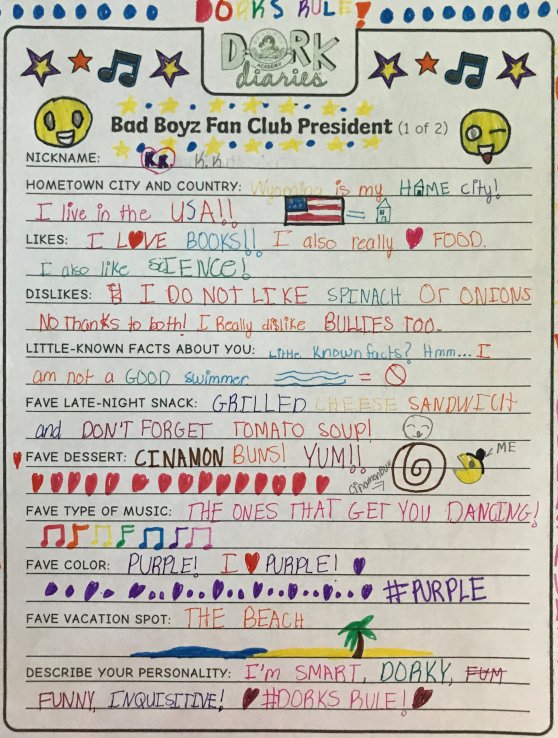 DORKS RULE!
DORK
ACADEMY
diaries
Bad Boyz Fan Club President (1 of 2)
NICKNAME: K.K. K.K
HOMETOWN CITY AND COUNTRY: Wyoming is my HOME city!
I live in the USA!! =
LIKES: I LOVE BOOKS!! I also really ♥ FOOD.
I also like SCIENCE!
DISLIKES: I DO NOT LIKE SPINACH Or ONIONS
No thanks to both! I Really dislike BULLIES TOO.
LITTLE-KNOWN FACTS ABOUT YOU: Little Known facts? Hmm... I
am not a GOOD swimmer =
FAVE LATE-NIGHT SNACK: GRILLED CHEESE SANDWICH
and DON'T FORGET TOMATO SOUP!
FAVE DESSERT: CINAMON BUNS! YUM!! ME
Cinamonbun
FAVE TYPE OF MUSIC: THE ONES THAT GET YOU DANCING!
FAVE COLOR: PURPLE! I ♥ PURPLE!
#PURPLE
FAVE VACATION SPOT: THE BEACH
DESCRIBE YOUR PERSONALITY: I'm SMART, DORKY, FUM
FUNNY, INQUISITIVE! ♥#DORKS RULE!♥